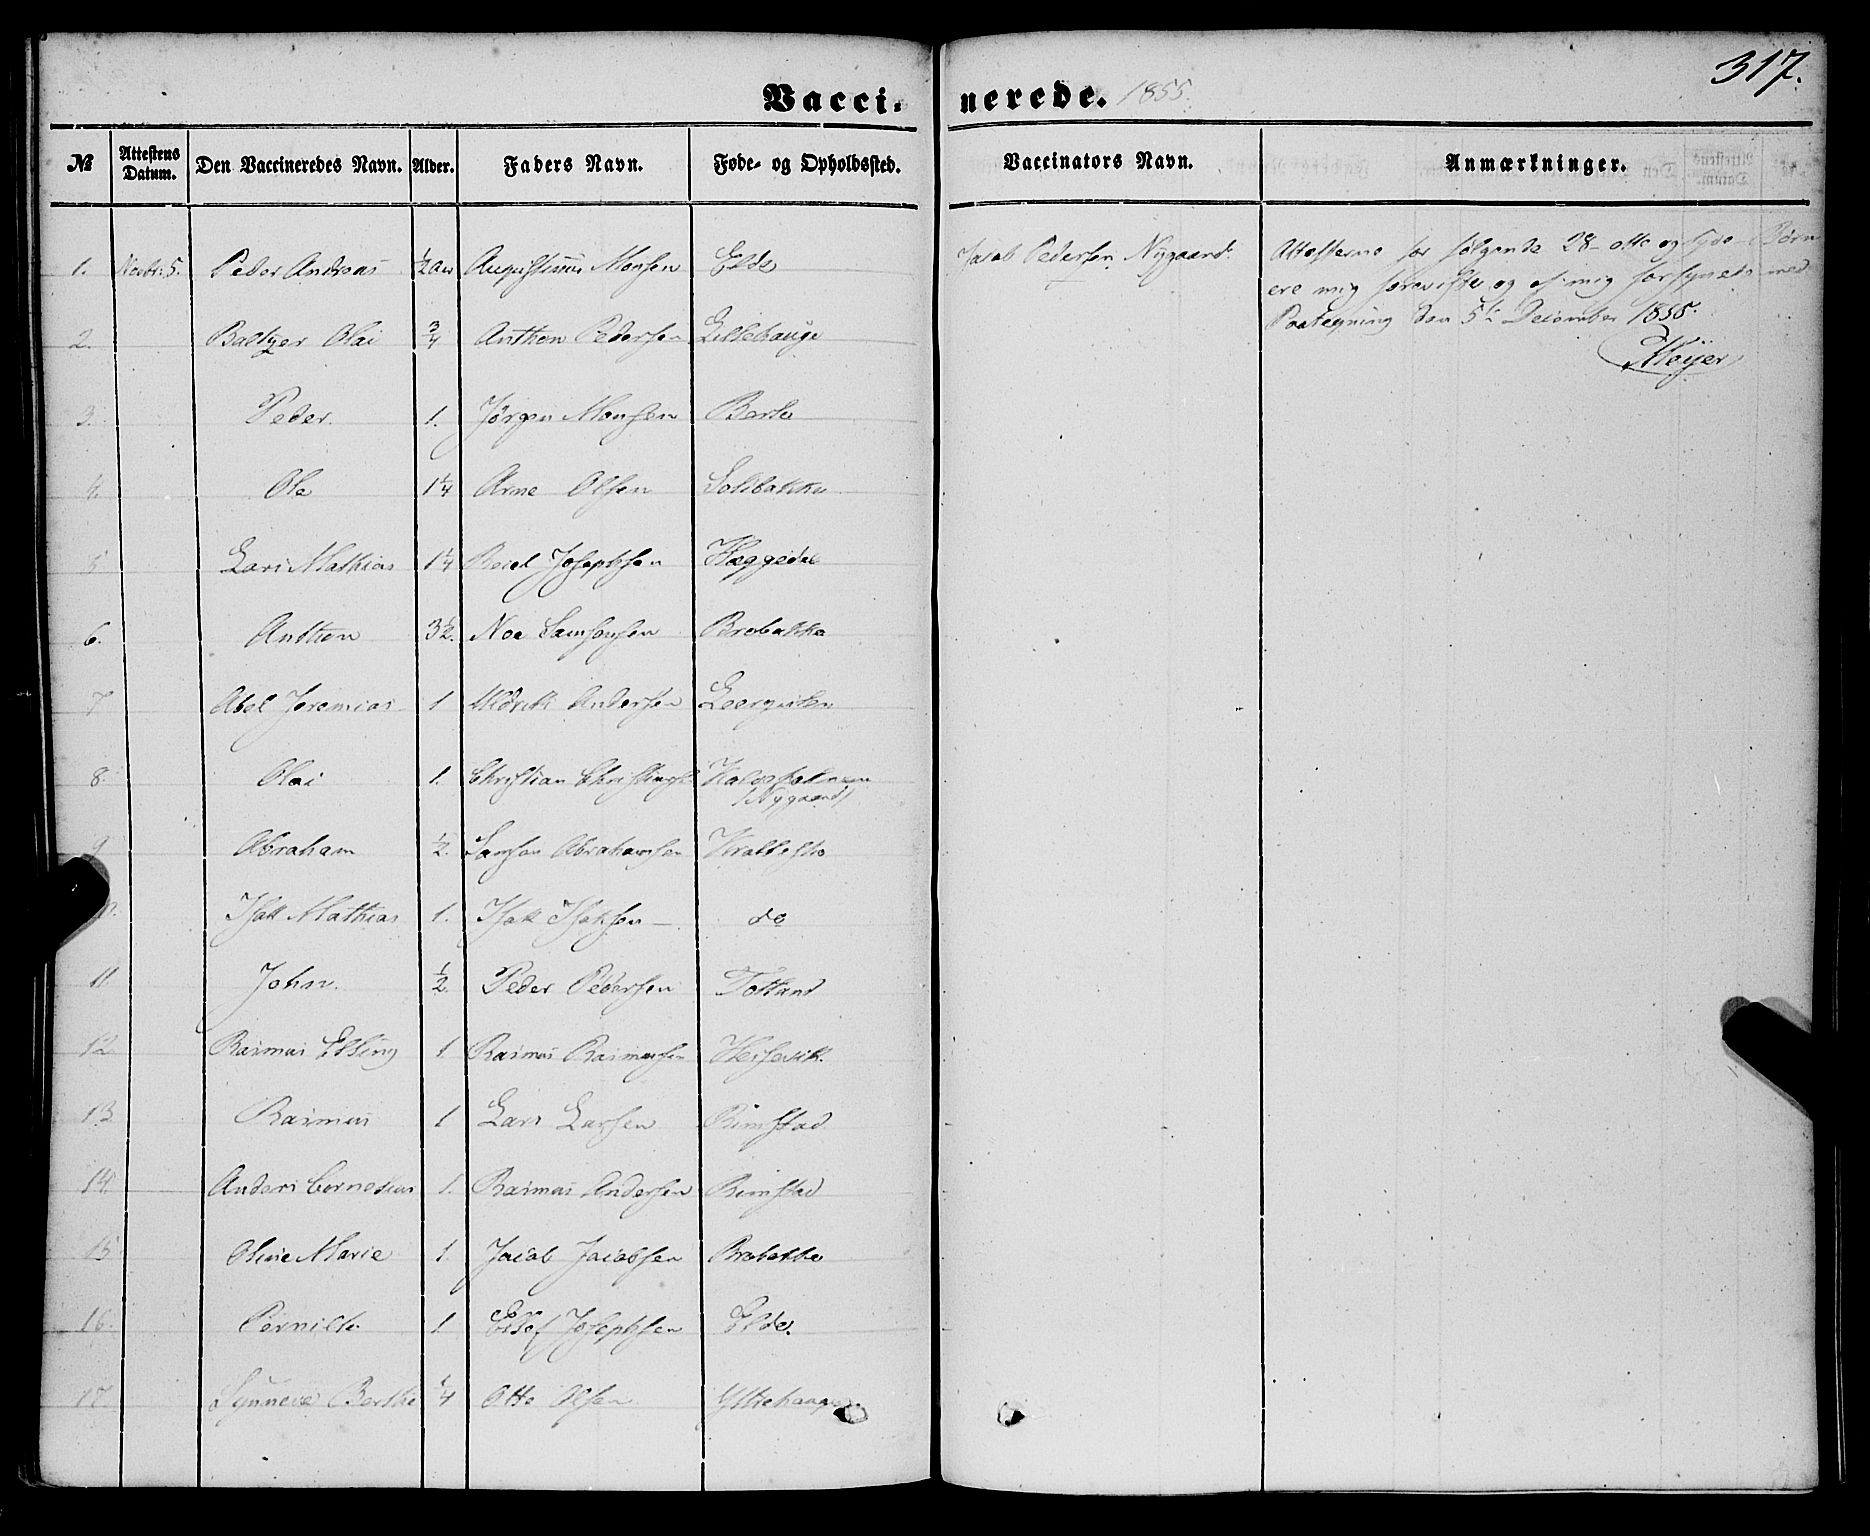 317.
Vacci- nerede. 1855.
№ Attestens Datum. Den Vaccineredes Navn. Alder. Faders Navn. Føde- og Opholdssted. Vaccinators Navn. Anmærkninger.
1. Novbr: 5. Peder Andreas ½ Aar Augustinus Monsen Elde Jacob Pedersen Nygaard. Attesterne for følgende 28 - otte og tyve - Børn
ere mig foreviste og af mig forsynede med
Paategning den 5te December 1855.
2. Baltzer Olai ¾ Anthon Pedersen Lillehauge
Meyer
3. Peder. 1. Jørgen Monsen Berle
4. Ole 1¼ Arne Olsen
5 Lars Mathias 1¼ Josephsen Hæggedal
6. Anthon 3½. Noe Samsonsen Brobakke
7 Abel Jeremias 1 Didrik Andersen
8. Olai 1. Christian
/Nygaard/
9 Abraham ½. Samson Abrahamsen
10. Isak Mathias 1. Isak Isaksen do
11. John. ½. Peder Pedersen Totland
12 Rasmus Elling 1. Rasmus Rasmussen
13 Rasmus 1 Lars Larsen Rimstad
14. Anders Cornelius 1. Rasmus Andersen Rimstad
15 Oline Marie 1. Jacob Jacobsen Brobakke
16. Pernille 1 Josephsen Elde.
17. Synneve Berthe ¼ Otto Olsen Yttrehauge